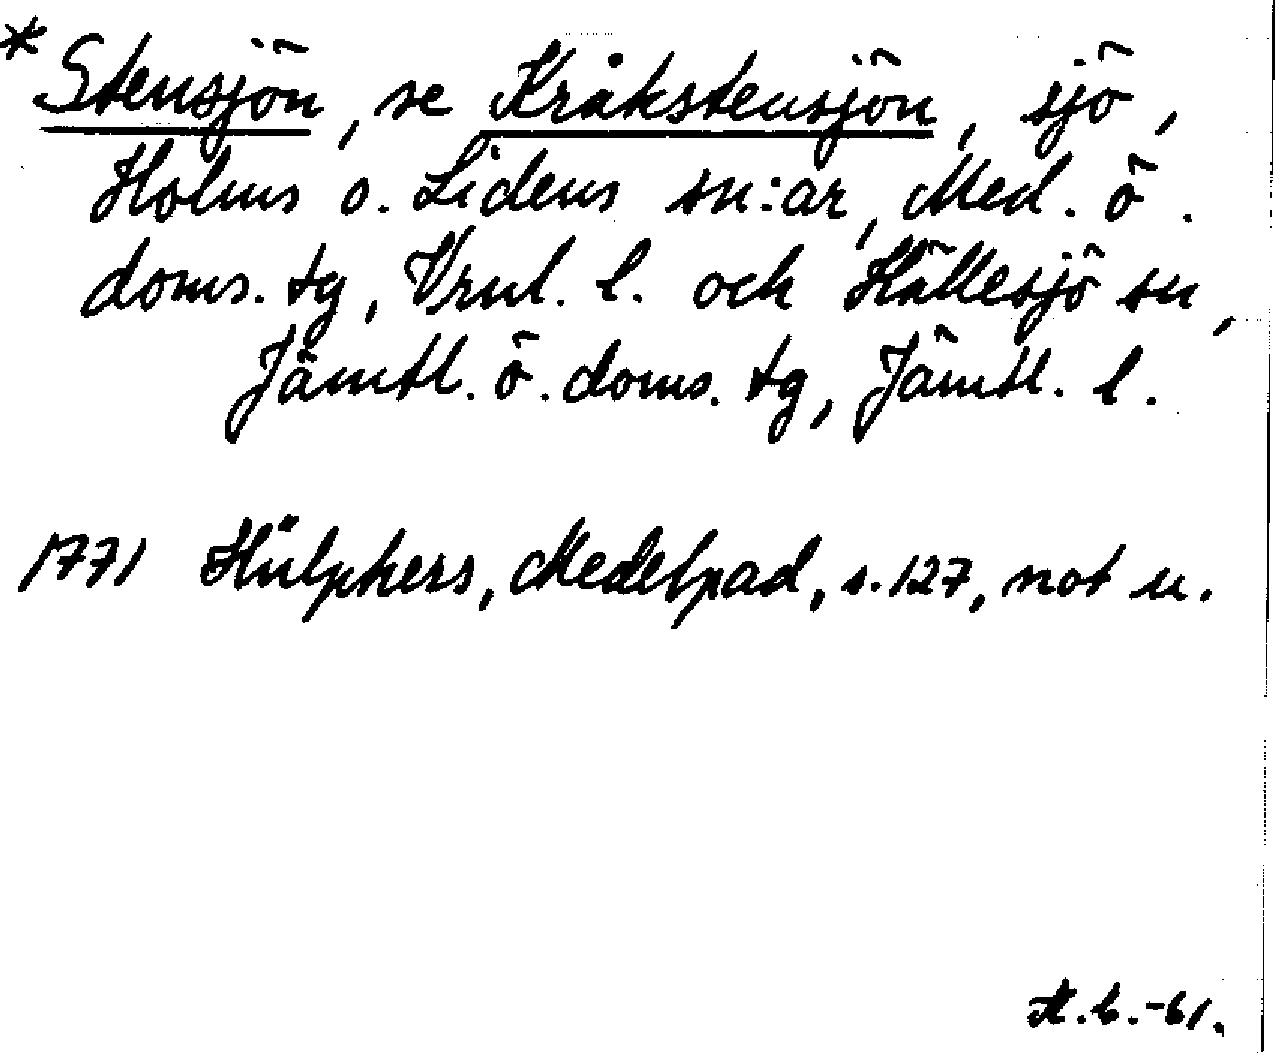 * Stensjön, se Kråkstensjön, sjö,
Holms o. Lidens sn:ar, Med. ö.
doms. tg, Vrnl. l. och Hällesjö sn,
Jämtl. ö. doms. tg, Jämtl. l.
1771 Hülphers, Medelpad, s. 127, not u.
A.b.-61.